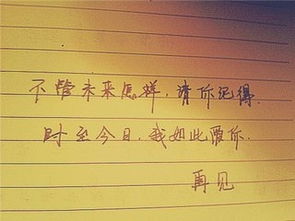 不管未来怎样，请你记得.
时至今日.我如此爱你.
再见